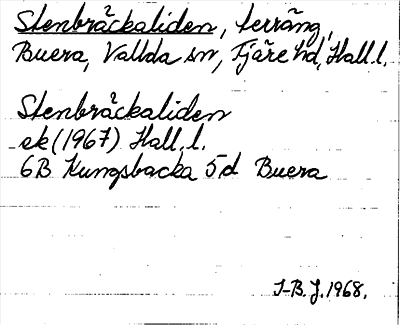 Stenbräckaliden, terräng,
Buera, Vallda sn, Fjäre hd, Hall.l.
Stenbräckaliden
ek (1967) Hall.l.
6B Kungsbacka 5d Buera
I-B. J. 1968.